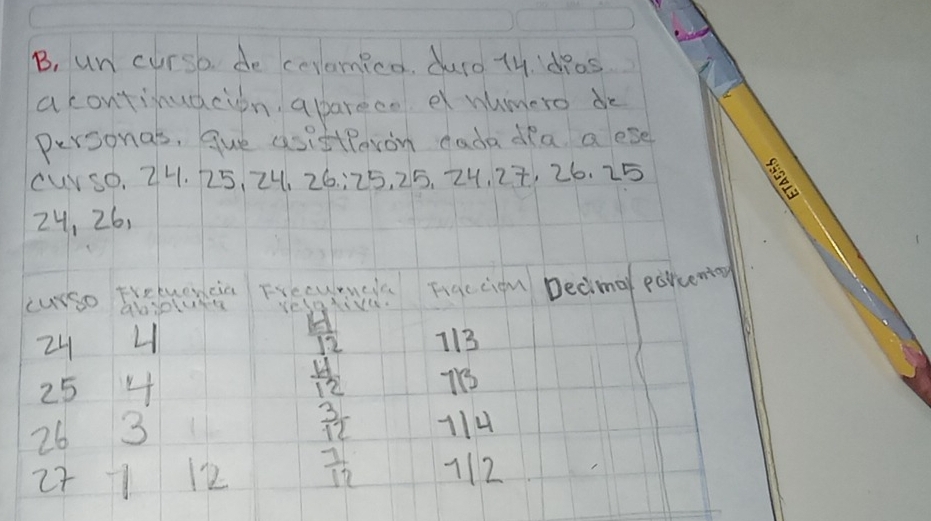 B. un curso de ceramica. duro 14. dias
a continuación, aparece el número de
personas. que asistierón cada dia a ese
curso. 24. 25, 24, 26; 25, 25, 24, 27, 26. 25
24, 26,
curso Frecuencia absoluta Frecuencia relativa. Fracción Decimal porcentaje
24 4 4/12 1/3
25 4 4/12 1/3
26 3 3/12 1/4
27 1 12 1/12 1/2